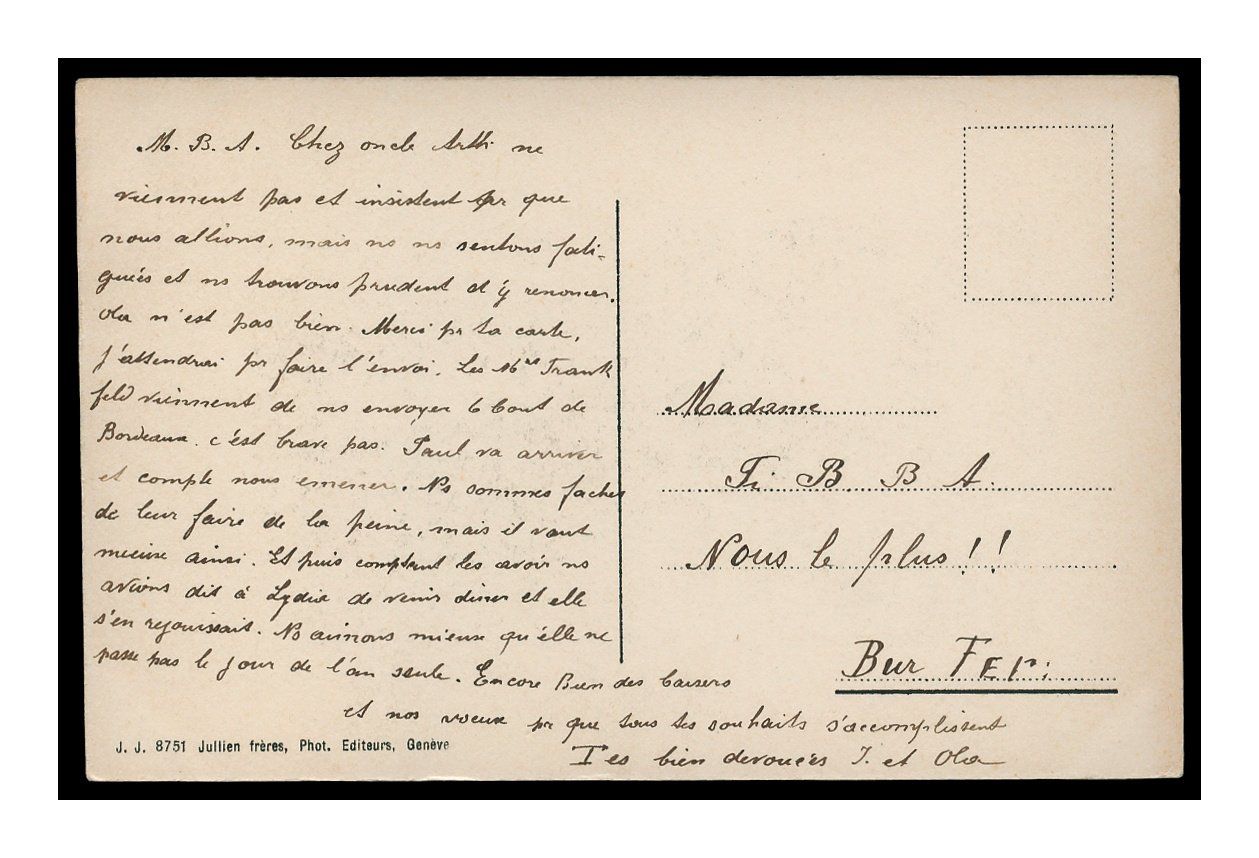 M. B. A. Chez oncle Arth ne
viennent pas et insistent pr que
nous allions, mais ns ns sentons fati-
guées et ns trouvons prudent d'y renoncer.
Ola n'est pas bien. Merci pr ta carte,
j'attendrai pr faire l'envoi. Les Mrs Frank
feld viennent de ns envoyer 6 bout de
Bordeaux. c'est brave pas. Paul va arriver
et compte nous emener. Ns sommes fachés
de leur faire de la peine, mais il vaut
mieux ainsi. Et puis comptant les avoir ns
avions dit à Lydia de venir diner et elle
s'en rejouissait. Ns aimons mieux qu'elle ne
passe pas le jour de l'an seule. Encore Bien des baisers
et nos voeux pr que tous tes souhaits s'accomplissent
Tes bien devouées J. et Ola
J. J. 8751 Jullien frères, Phot. Editeurs, Genève
Madame
Ti B. B A.
Nous le plus!!
Bur Fer: